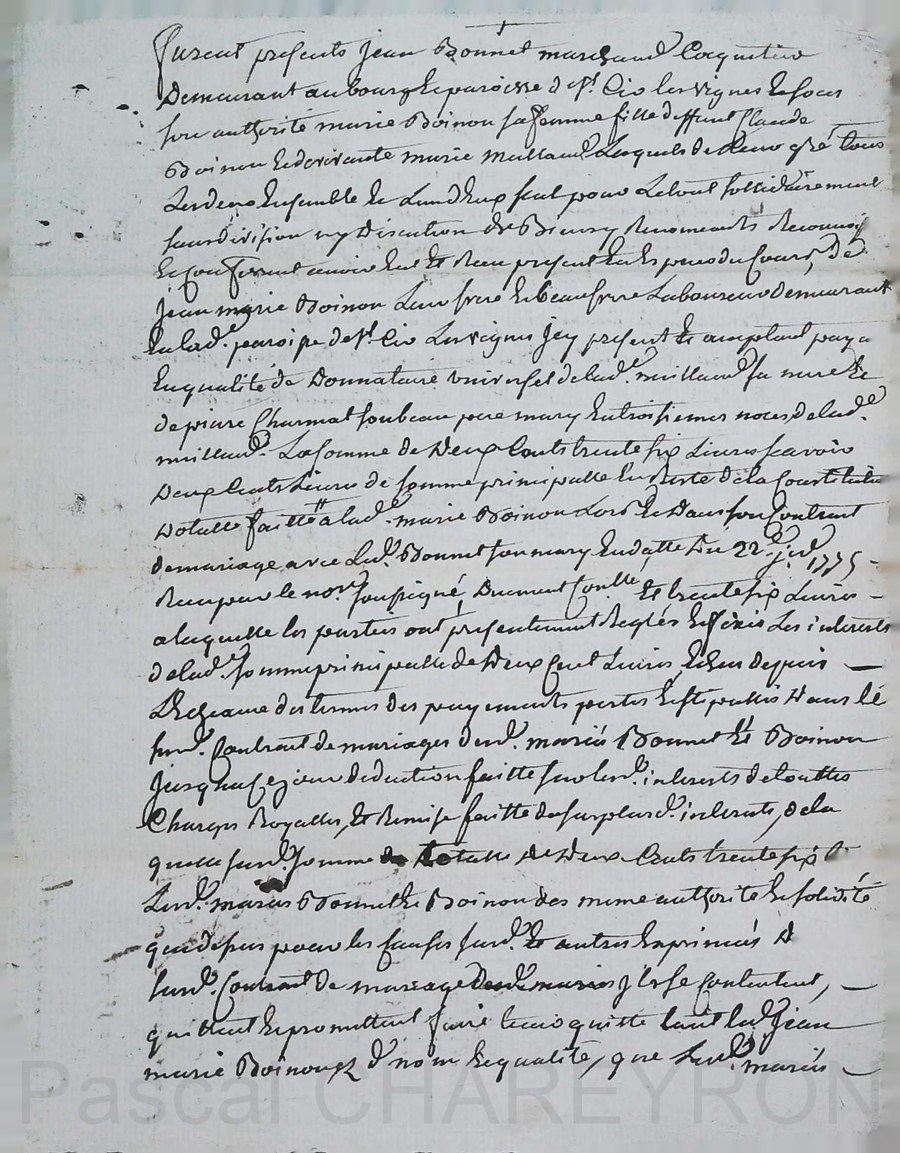 furent presents Jean Bonnet marchand Coquetier
Demeurant au bourg et paroisse de St. Cir les vignes et sous
son authorité marie Boinon sa femme fille deffunt Claude
Boinon et de vivante marie meilland Lesquels de leur gré tous
Les deux Ensemble et Lun deux seul pour Le tout sollidairement
sans division ny Discution de Biens y Renonceants Reconnoiss
et Confessent avoir Eut et Receu presentement Especes du Cours, de
Jean marie Boinon Leur frere et beaufrere Laboureur demeurant
En lade. paroisse de St. Cir Les vignes Jcy present et acceptant paya
En qualité de Donnataire universel de lade. meilland sa mere et
de pierre Charmat son beau pere mary En troisiemes noces de lade.
meilland. La somme de Deux Cents trente six Livres scavoir
Deux Cents Livres de somme principalle En Reste de la Constitution
Dotalle faitte a lade. marie Boinon Lors et Dans son Contrant
de mariage avec Led. Bonnet son mary En datte Du 22e. 1775 -
Receu par le nore. soussigné, Duement Conllé Et trente six Livres -
a laquelle les parties ont presentement Reglés Et fixés Les interests
de lade. somme principalle de Deux Cent Livres, Echus depuis -
L'Echeance des termes des payements portés Et stipullés Dans le
susd. Contrant de mariages desd. mariés Bonnet Et Boinon
Jusqua ce jour deduction faitte sur lesd. interests de touttes
Charges Royalles, Et Remise faitte du surplus d. interests, de la
quelle susd. somme totalle de Deux Cents trente six L
Lesd. mariés Bonnet Et Boinon des meme authorité Et solidité
que dessus pour les causes susd. Et autres Exprimés D
susd. Contrant de mariage Jls se Contentent, -
quittent Et promettent faire tenir quitte tant led. Jean
marie Boinon d. nom Et qualité, que Lesd. mariés -
Pascal CHAREYRON